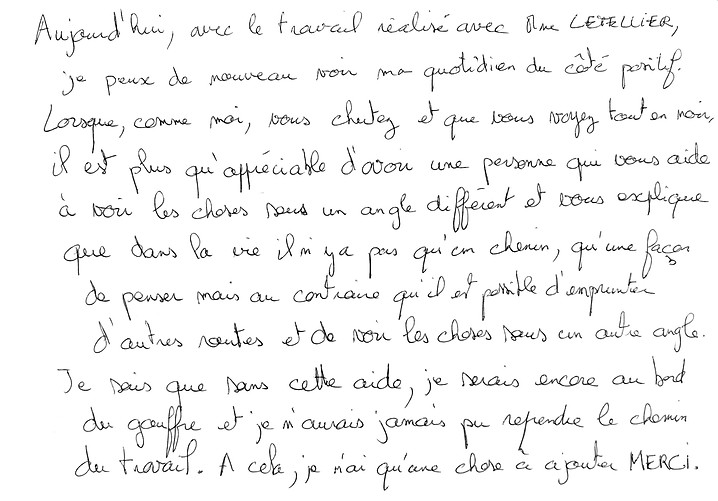 Aujourd'hui, avec le travail réalisé avec Mme LETELLIER,
je peux de nouveau voir ma quotidien du côté positif.
Lorsque, comme moi, vous chutez et que vous voyez tout en noir,
il est plus qu'appréciable d'avoir une personne qui vous aide
à voir les choses sous un angle différent et vous explique
que dans la vie il n'y a pas qu'un chemin, qu'une façon
de penser mais au contraire qu'il est possible d'emprunter
d'autres routes et de voir les choses sous un autre angle.
Je sais que sans cette aide, je serais encore au bord
du gouffre et je n'aurais jamais pu reprendre le chemin
du travail. A cela, je n'ai qu'une chose à ajouter MERCI.